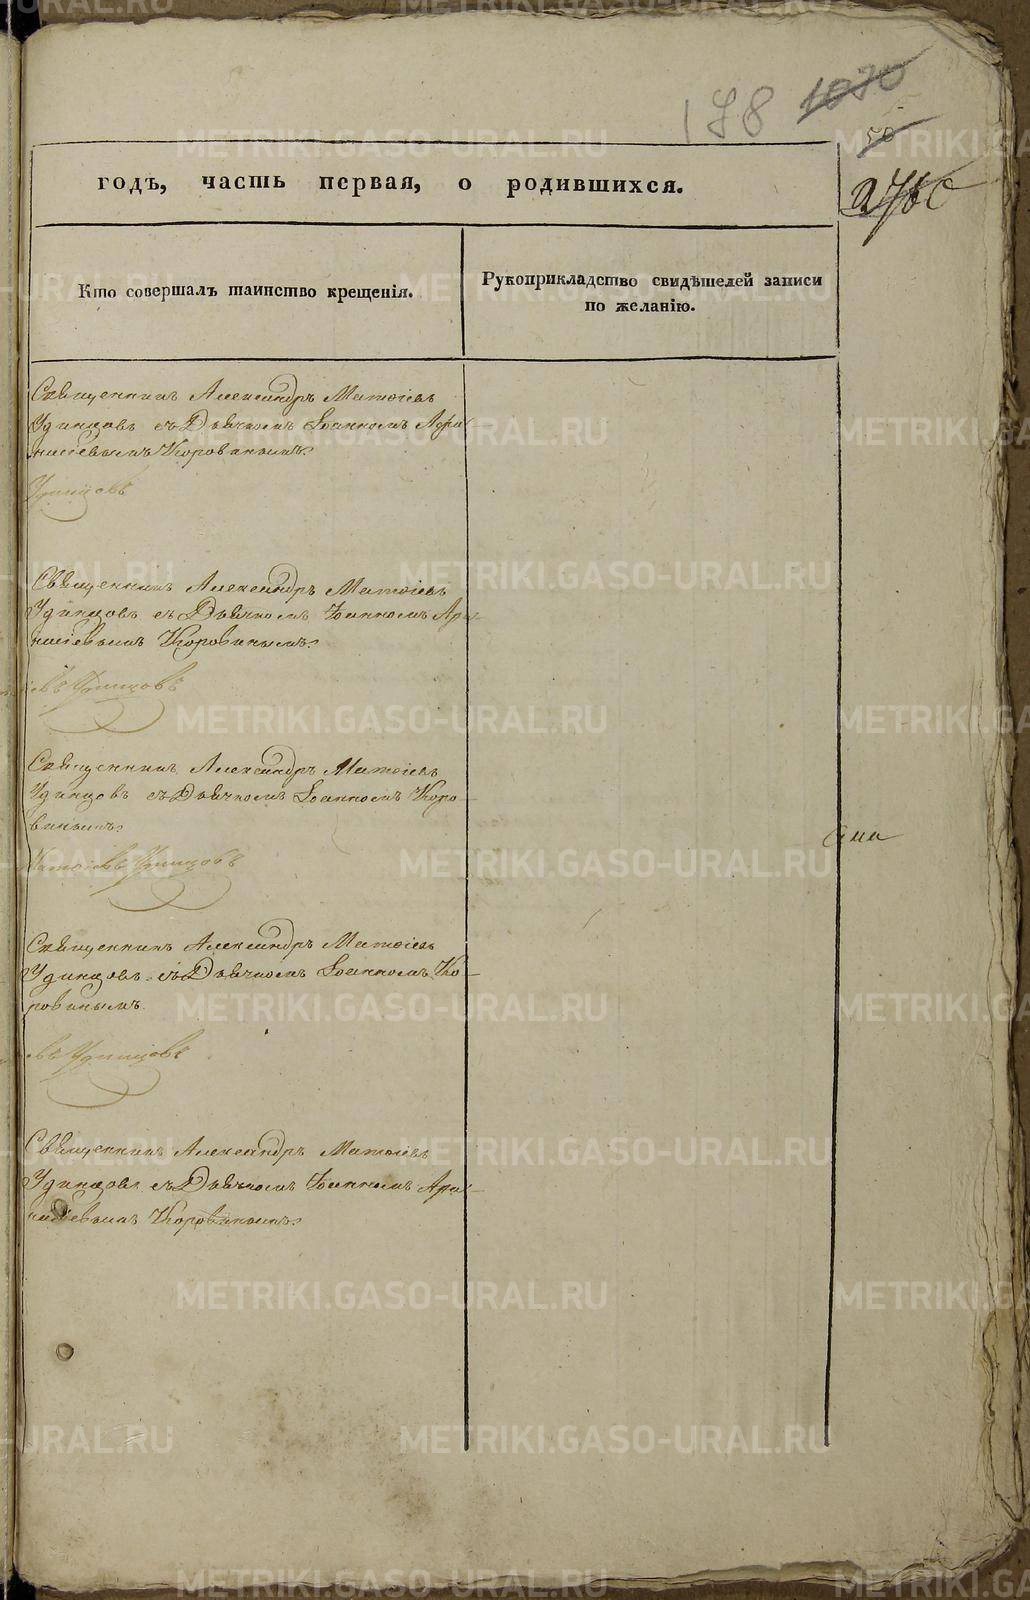 178 1070
50
годъ, часть первая, о родившихся.
Кто совершалъ таинство крещенія.
Рукоприкладство свидѣтелей записи
по желанію.
Священникъ Александръ Матѳіевъ
Удинцовъ съ Дьячкомъ Іоанномъ
Коровинымъ.
Удинцовъ
Священникъ Александръ Матѳіевъ
Удинцовъ съ Дьячкомъ Іоанномъ
Коровинымъ.
въ Удинцовъ
Священникъ Александръ Матѳіевъ
Удинцовъ съ Дьячкомъ Іоанномъ Коро-
винымъ.
Матѳіевъ Удинцовъ
Священникъ Александръ Матѳіевъ
Удинцовъ съ Дьячкомъ Іоанномъ Ко-
ровинымъ.
въ Удинцовъ
Священникъ Александръ Матѳіевъ
Удинцовъ съ Дьячкомъ Іоанномъ
Коровинымъ.
METRIKI.GASO-URAL.RU